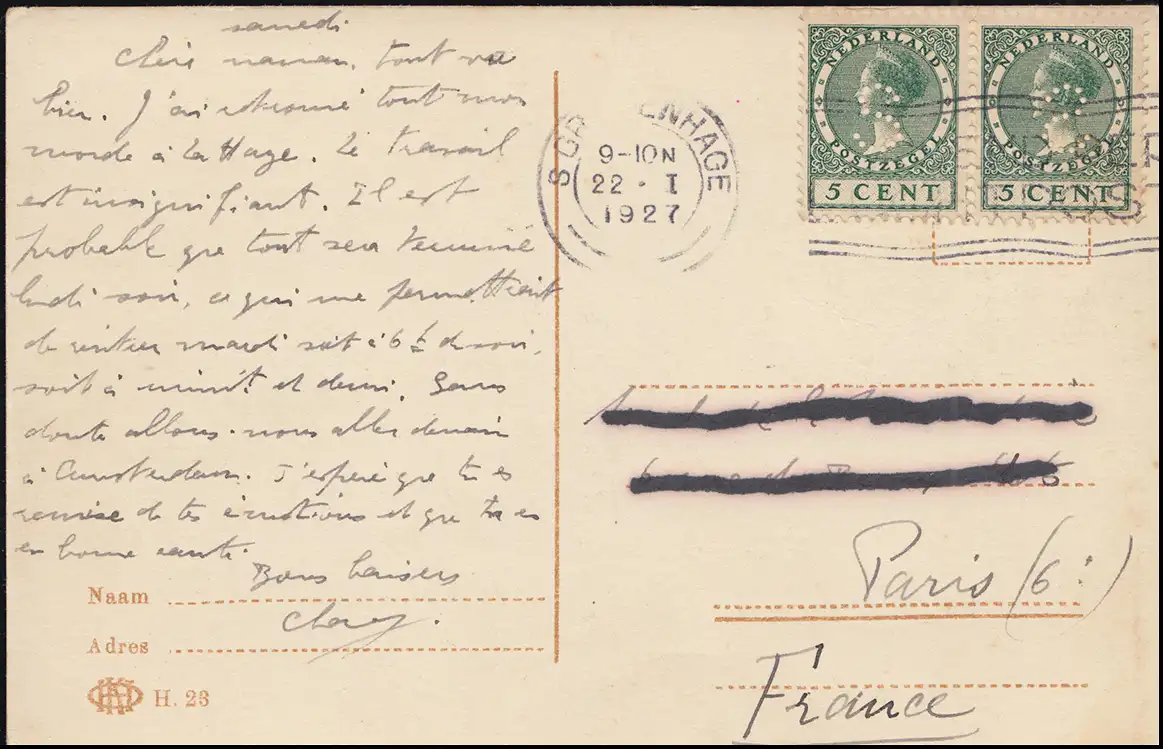 samedi
Chère maman. tout va
bien. J'ai retrouvé tout mon
monde à La Haye. Le travail
est insignifiant. Il est
probable que tout sera terminé
lundi soir, ce qui me permettrait
de rentrer mardi soit à 6h du soir,
soit à minuit et demi. Sans
doute allons-nous aller demain
à Amsterdam. J'espère que tu es
remise de tes émotions et que tu es
en bonne santé.
Bons baisers
Naam
Adres
H. 23
S GRAVENHAGE
9-10N
22 · I
1927
NEDERLAND
POSTZEGEL
5 CENT
NEDERLAND
POSTZEGEL
5 CENT
Paris (6e)
France